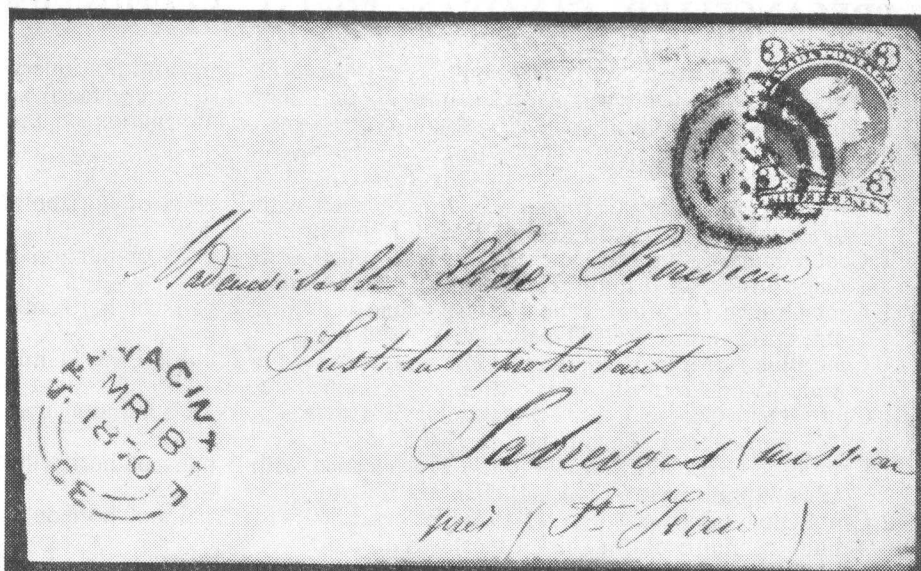 3 3
CANADA POSTAGE
3 3
THREE CENTS
Mademoiselle Elise
Institut protestant
Sabrevois (mission
près (St Jean)
ST. HYACINTHE
MR 18
18-0
C.E